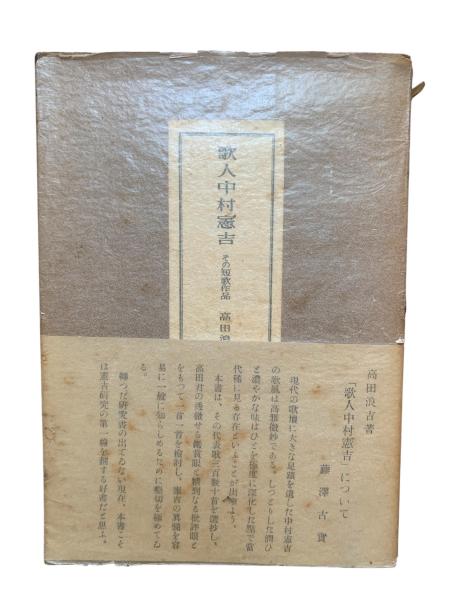 歌人中村憲吉
その短歌作品
高田浪
高田浪吉著
「歌人中村憲吉」について
藤澤古實
現代の歌壇に大きな足蹟を遺した中村憲吉
の歌風は高雅微妙である。しつとりした潤ひ
と濃やかな味はひとを極度に深化した點で當
代稀に見る存在といふことが出來よう。
本書は、その代表歌三百數十首を選抄し、
高田君の透徹せる鑑賞眼と精到なる批評眼と
をもつて一首一首を檢討し、憲吉の眞髓を容
易に一般に知らしめるために懇切を極めてゐ
る。
類つた研究書の出てゐない現在、本書こそ
は憲吉研究の第一線を劃する好書だと思ふ。